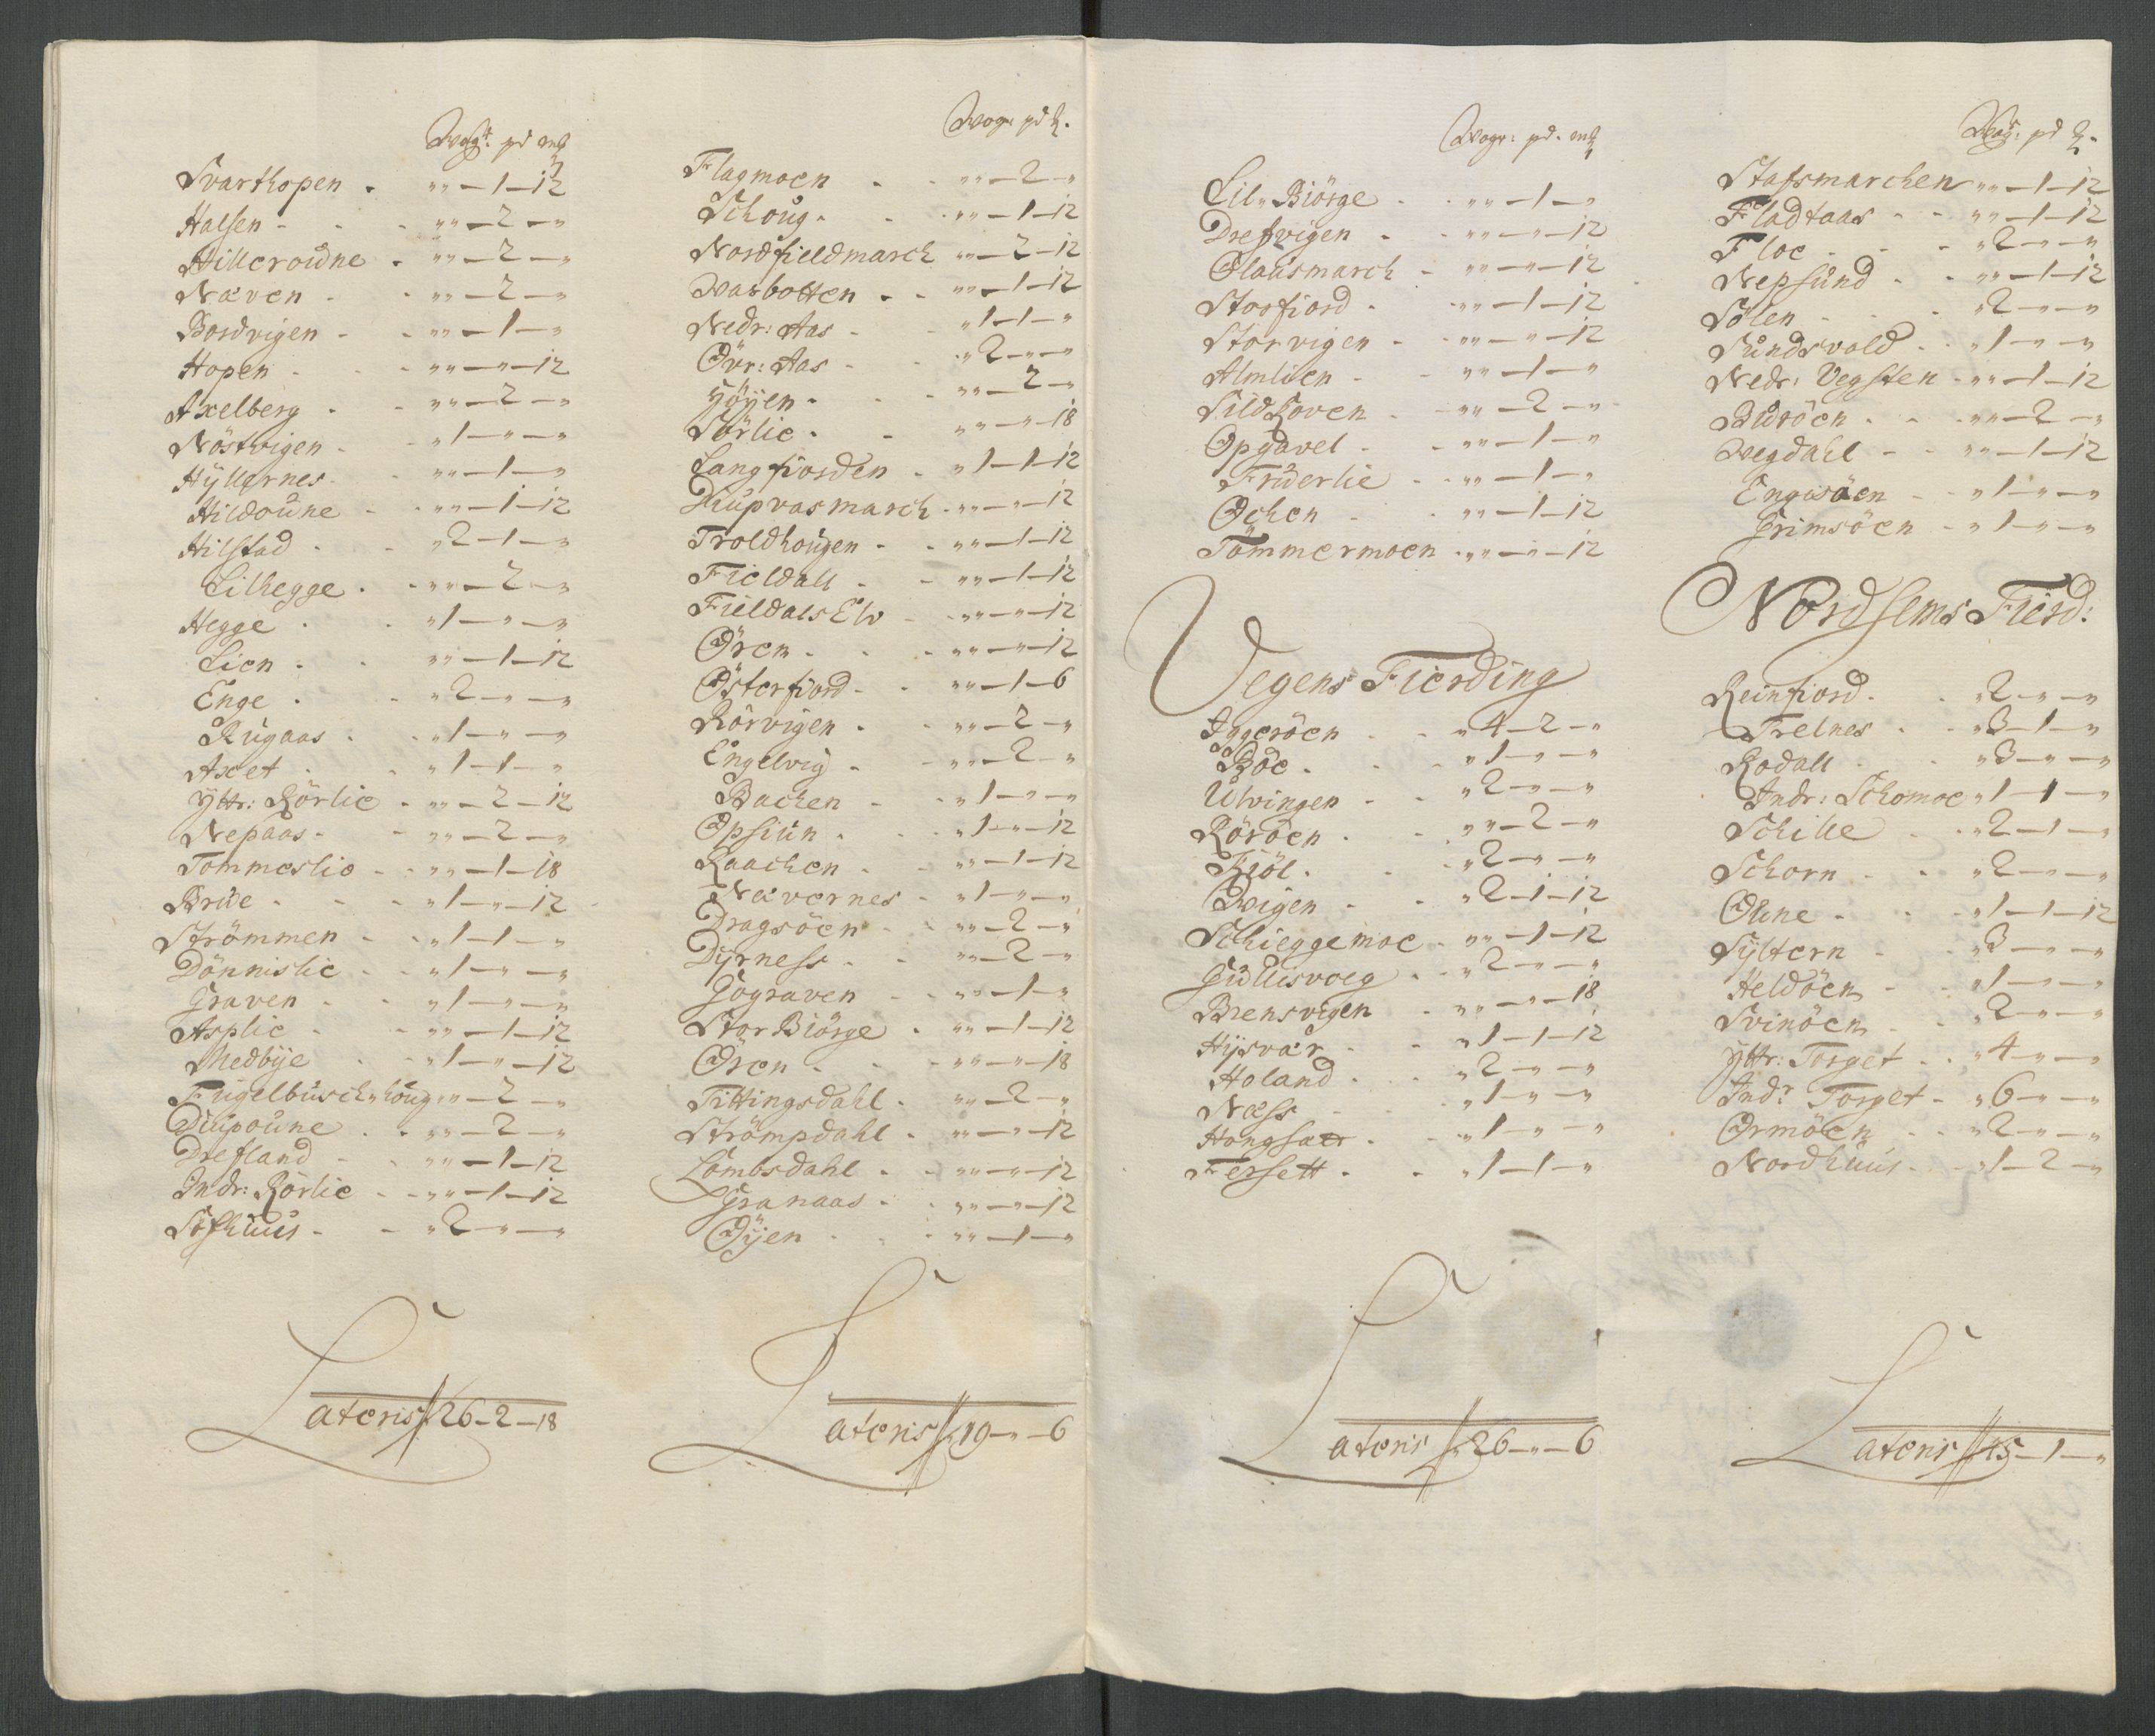 Wogr: pd mk
Svarthopen . „„ — 1 — 12
Halsen - - - „„ — 2 — „
Hilleroŭne . „„ — 2 — „
Næven - - „„ — 2 — „
Bordvigen - - „„ — 1 — „
Hopen - - - „„ — „ — 12
Axelberg . - „„ — 2 — „
Nöstvigen - - „ 1 — „ — „
Hÿllernes - - „„ — 1 — „
Hildoŭne - - „„ — 1 — 12
Hilstad . - „ 2 — 1 — „
Lilhegge . - „„ — 2 — „
Hegge . - „ 1 — „ — „
Lien . - „„ — 1 — 12
Enge . - „ 2 — „ — „
Rŭgaas . - „ 1 — „ — „
Axet . - „ 1 — 1 — „
Yttr: Rörlie . „„ — 2 — 12
Nepaas - - „„ — 2 — „
Tommeslie - - „„ — 1 — 18
Brŭe - - - „ 1 — „ — 12
Strömmen - - „ 1 — 1 — „
Dönnislie - - „ 1 — „ — „
Graven - - „ 1 — „ — „
Asplie - - „„ — 1 — 12
Medbÿe - - „ 1 — „ — 12
Fŭgelbŭsch„hoŭg „„ — 2 — „
Diŭpoŭne . . „„ — 2 — „
Drefland - - „„ — 1 — 12
Indr: Rörlie - - „„ — 1 — 12
Söfhŭŭs - - „ 2 — „ — „
Lateris 26 — 2 — 18
Wogr: pd mk.
Flagmoen - - „„ — 2 — „
Schoŭg - - „„ — 1 — 12
Nordfieldmarch „„ — 2 — 12
Wasbotten - - „„ — 1 — 12
Nedr: Aas - - „ 1 — 1 — „
Övr: Aas - - „ 2 — „ — „
Höÿen - - - „„ — 2 — „
Sörlie - - „„ — „ — 18
Langfiorden . „ 1 — 1 — 12
Diŭpvasmarch - „„ — „ — 12
Troldhoŭgen - - „„ — 1 — 12
Fieldall - - „„ — 1 — 12
Fieldals Elv - „„ — „ — 12
Ören - - - „„ — „ — 12
Österfiord - - „„ — 1 — 6
Rörvigen . - „„ — 2 — „
Engelvig - - „„ — 2 — „
Bachen - - „ 1 — „ — „
Opsiŭn - - „ 1 — „ — 12
Raachen - - „„ — 1 — 12
Nævernes - „ 1 — „ — „
Dragsöen - - „„ — 2 — „
Dÿrness . - „„ — 2 — „
Gograven - - „„ — 1 — „
Stor Biörge . „„ — 1 — 12
Ören - - - „„ — „ — 18
Tittingsdahl . „„ — 2 — „
Strömpdahl . „„ — „ — 12
Lombsdahl - - „„ — „ — 12
Granaas - - „„ — „ — 12
Öÿen - - - „„ — 1 — „
Lateris 19 — „ — 6
Wogr: pd. mk
Lil„ Biörge - - „„ — 1 — „
Drefvigen - - „„ — „ — 12
Olaŭsmarch - „„ — „ — 12
Storfiord - - „„ — 1 — 12
Storvigen - - „„ — „ — 12
Almlien - - „„ — 1 — „
Sildhoven - - „„ — 2 — „
Opgavel - - „„ — 1 — „
Frŭderlie - - „„ — 1 — „
Ochen - - „„ — 1 — 12
Tömmermoen - „„ — „ — 12
Vegens Fierding
Iggeröen - - „ 4 — 2 — „
Böe . - - „ 1 — „ — „
Ulvingen - - „ 2 — „ — „
Röröen - - „„ — 2 — „
Kiöl . - - „ 2 — „ — „
Wigen - - „ 2 — 1 — 12
Schieggemoe - „„ — 1 — 12
Gŭllisvoeg - - „ 2 — „ — „
Brensvigen - „„ — „ — 18
Hÿsvær - - „ 1 — 1 — 12
Holand - - „ 2 — „ — „
Næss - - „ 1 — „ — „
Hongsær - - „ 1 — „ — „
Fersett - - „ 1 — 1 — „
Lateris 26 — „ — 6
Wogr: pd mk.
Stafsmarchen „„ — 1 — 12
Fladtaas - - „„ — 1 — 12
Floe - - „ 2 — „ — „
Nepsŭnd - - „„ — 1 — 12
Sölen - - „ 2 — „ — „
Sŭndsvold - - „ 1 — „ — „
Nedr: Vegsten - „„ — 1 — 12
Bŭröen - - „„ — 2 — „
Wegdahl - - „„ — 1 — 12
Engisöen - - „ 1 — „ — „
Grimsöen - „ 1 — „ — „
Nordlems Fierd:
Reinfiord - - „ 2 — „ — „
Trelnes - - „ 3 — 1 — „
Rodall - - „ 3 — „ — „
Indr: Schomoe „ 1 — 1 — „
Schille - - „ 2 — 1 — „
Schorn - - „ 2 — „ — „
Oŭne - - „ 1 — 1 — 12
Sÿltern - - „ 3 — „ — „
Heldöen - - „ 1 — „ — „
Svinöen - - „ 2 — „ — „
Yttr: Torget - - „ 4 — „ — „
Indr Torget - „ 6 — „ — „
Ormöen - - „ 2 — „ — „
Nordhuŭs - - „ 1 — 2 — „
Lateris 15 — 1 — „